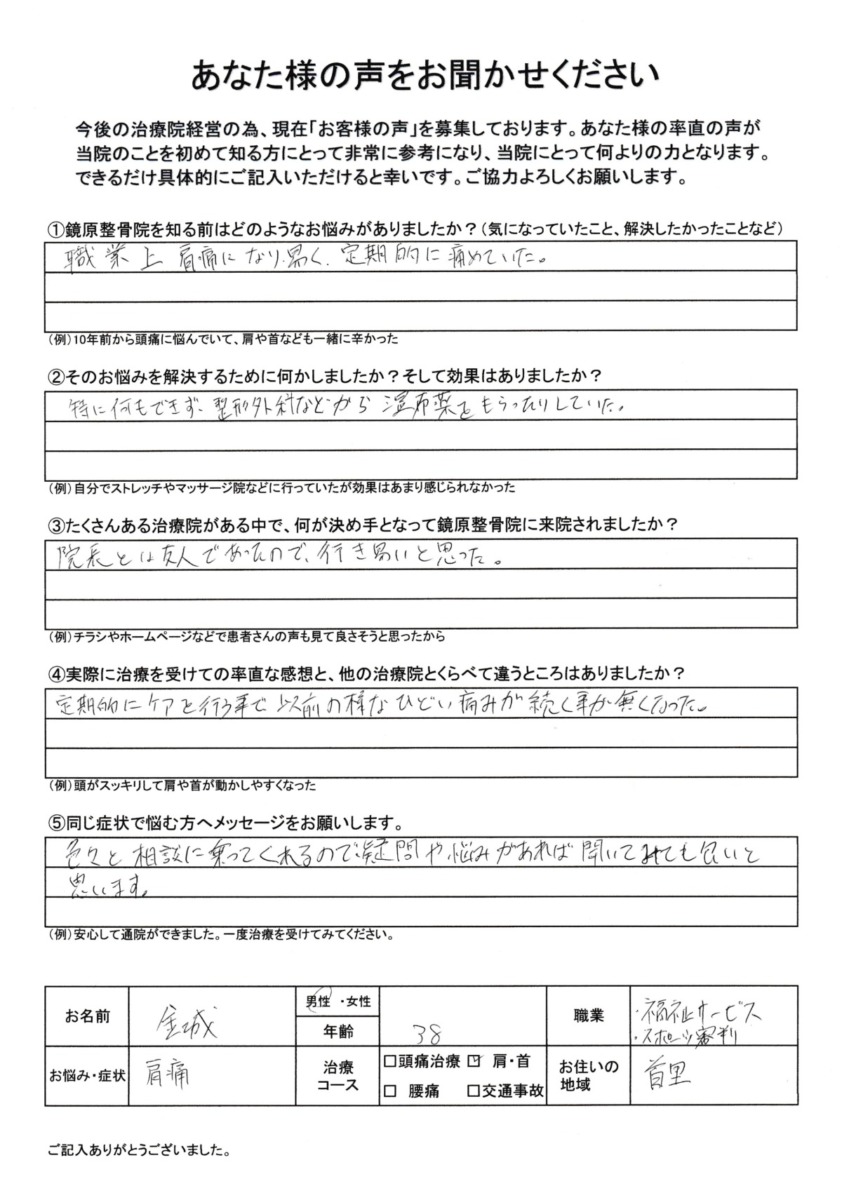 あなた様の声をお聞かせください
今後の治療院経営の為、現在「お客様の声」を募集しております。あなた様の率直の声が
当院のことを初めて知る方にとって非常に参考になり、当院にとって何よりの力となります。
できるだけ具体的にご記入いただけると幸いです。ご協力よろしくお願いします。
①鏡原整骨院を知る前はどのようなお悩みがありましたか？（気になっていたこと、解決したかったことなど）
職業上 肩痛になり易く、定期的に痛めていた。
（例）10年前から頭痛に悩んでいて、肩や首なども一緒に辛かった
②そのお悩みを解決するために何かしましたか？そして効果はありましたか？
特に何もできず、整形外科などから 湿布薬をもらったりしていた。
（例）自分でストレッチやマッサージ院などに行っていたが効果はあまり感じられなかった
③たくさんある治療院がある中で、何が決め手となって鏡原整骨院に来院されましたか？
院長とは友人であったので、行き易いと思った。
（例）チラシやホームページなどで患者さんの声も見て良さそうと思ったから
④実際に治療を受けての率直な感想と、他の治療院とくらべて違うところはありましたか？
定期的にケアを行う事で以前の様なひどい痛みが続く事が無くなった。
（例）頭がスッキリして肩や首が動かしやすくなった
⑤同じ症状で悩む方へメッセージをお願いします。
色々と相談に乗ってくれるので疑問や悩みがあれば聞いてみても良いと
思います。
（例）安心して通院ができました。一度治療を受けてみてください。
お名前 金城 男性・女性 年齢 38 職業 ・福祉サービス
・スポーツ審判
お悩み・症状 肩痛 治療コース □頭痛治療 ☑肩・首 お住いの地域 首里
□腰痛 □交通事故
ご記入ありがとうございました。